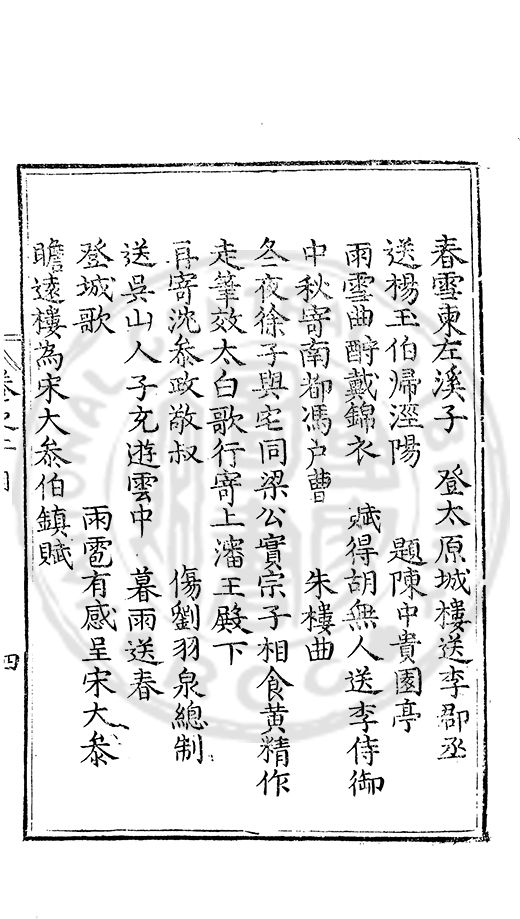 春雪柬左溪子　登太原城樓送李郡丞
送楊玉伯歸涇陽　題陳中貴園亭
雨雪曲酧戴錦衣　賦得胡無人送李侍御
中秋寄南都馮户曹　朱樓曲
冬夜徐子與宅同梁公實宗子相食黄精作
走筆效太白歌行寄上瀋王殿下
再寄沈叅政敬叔　傷劉羽泉總制
送吳山人子充遊雲中　暮雨送春
登城歌　雨雹有感呈宋大叅
瞻遠樓為宋大叅伯鎮賦
目　四